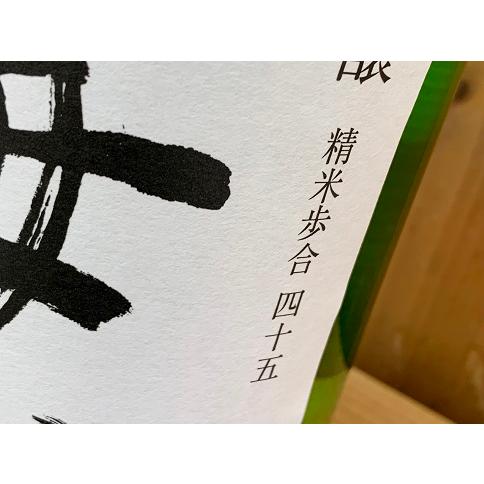 醸
精米歩合 四十五